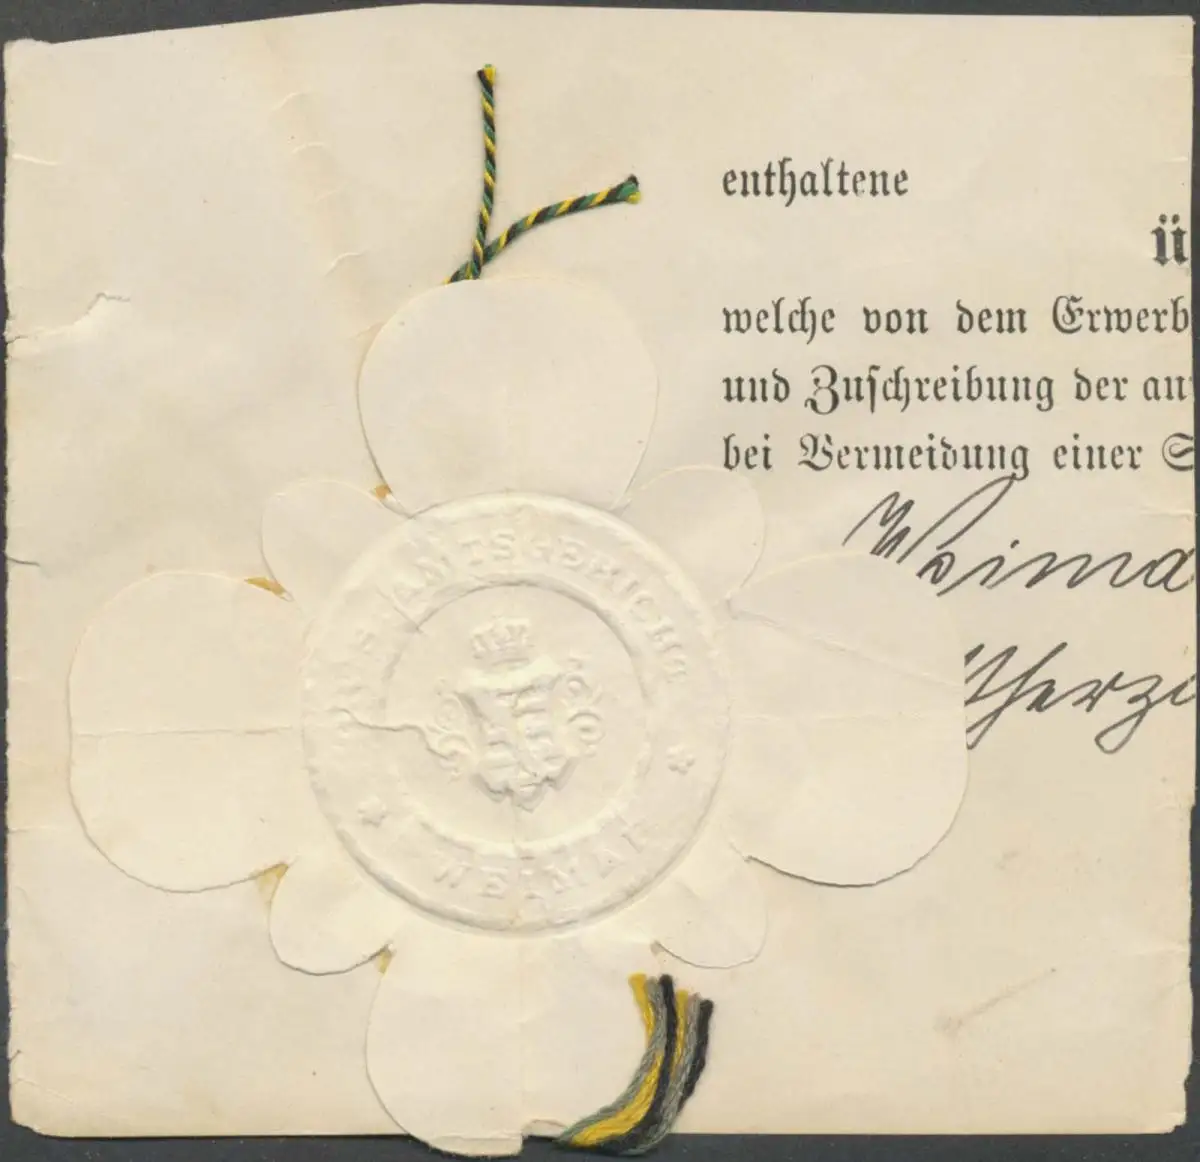 enthaltene
ü
welche von dem Erwerb
und Zuschreibung der an
bei Vermeidung einer S
Weima
AMTSGERICHT
WEIMAR